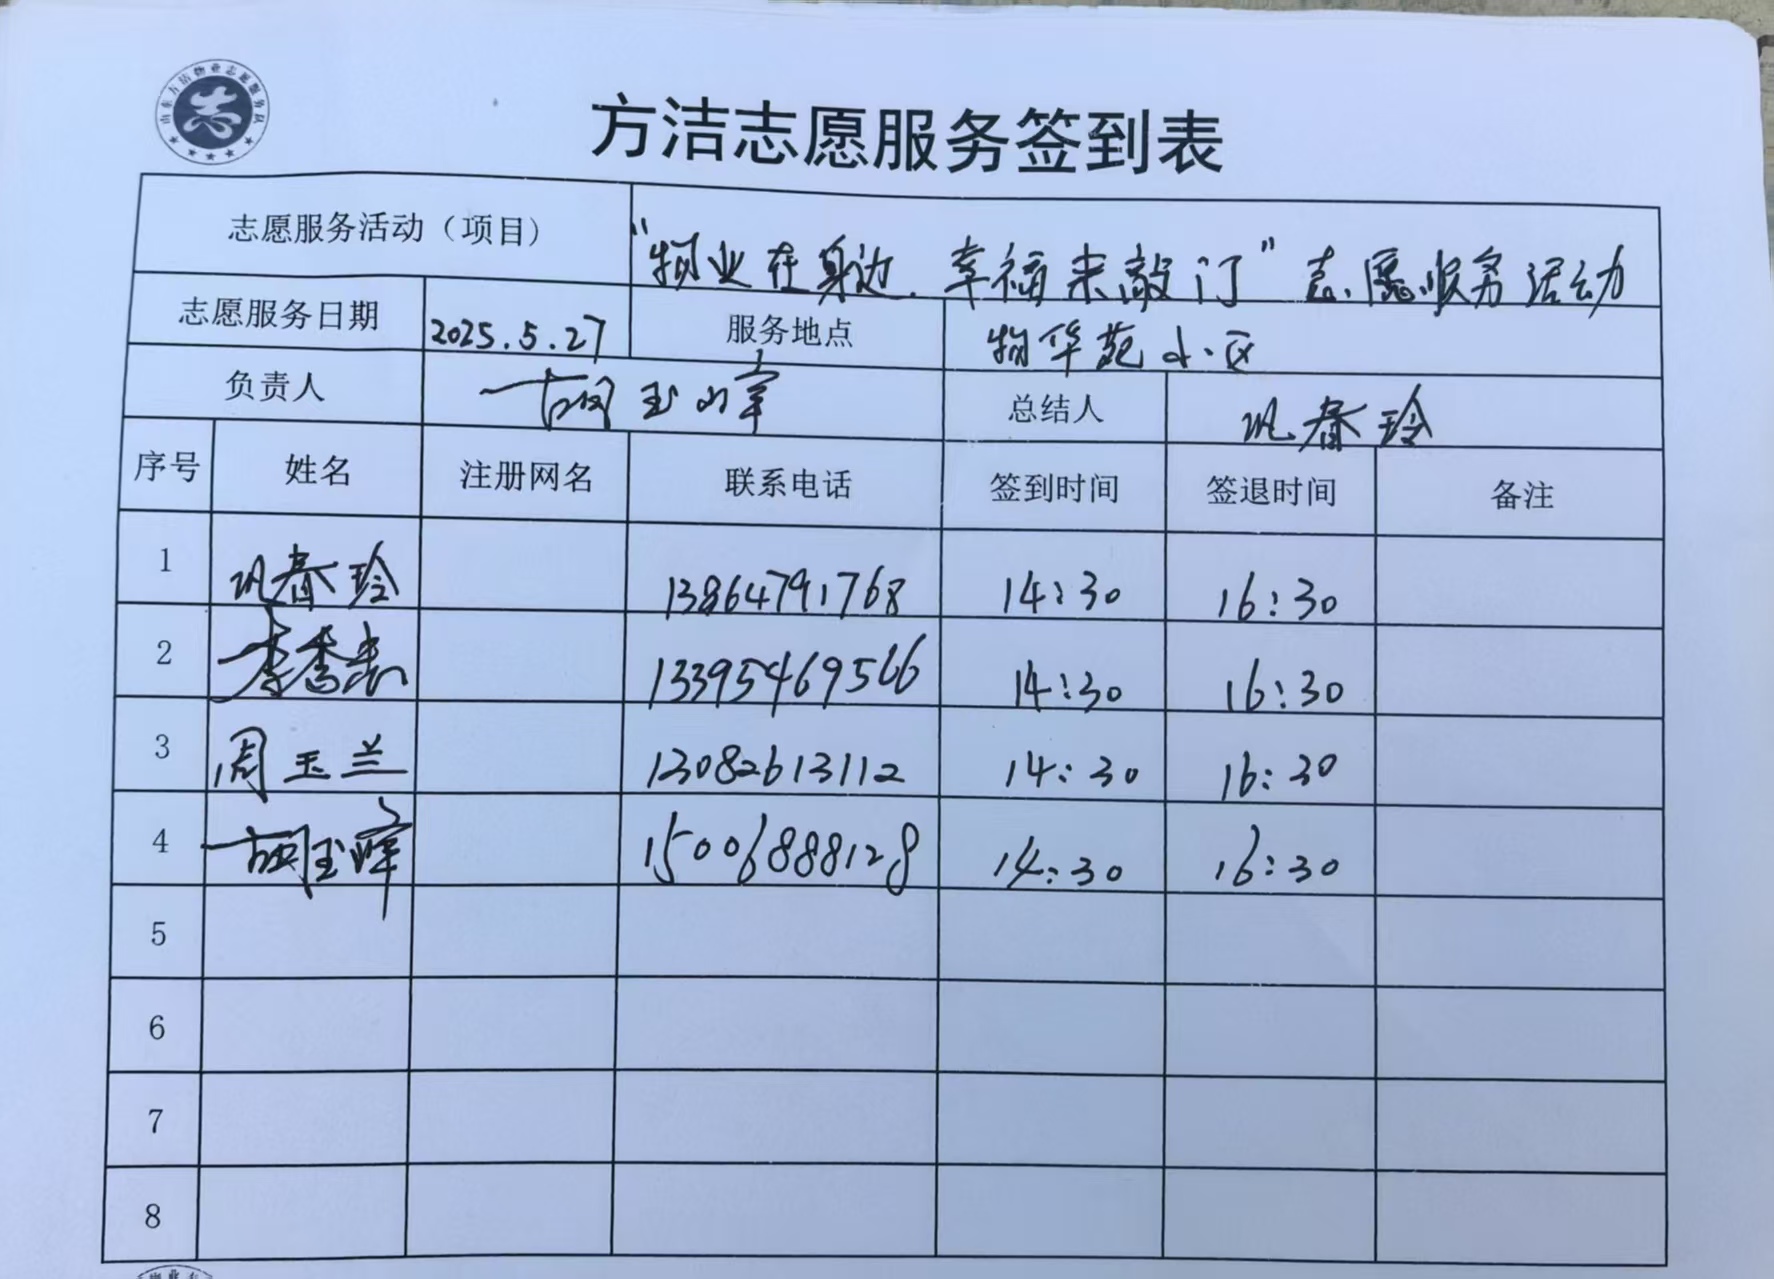 山东方洁物业志愿服务队
方洁志愿服务签到表
志愿服务活动（项目） “物业在身边.幸福来敲门”志愿服务活动
志愿服务日期 2025.5.27 服务地点 物华苑小区
负责人 胡玉峰 总结人 巩春玲
序号 姓名 注册网名 联系电话 签到时间 签退时间 备注
1 巩春玲 13864791768 14:30 16:30
2 李秀 13395469566 14:30 16:30
3 周玉兰 13082613112 14:30 16:30
4 胡玉峰 15006888128 14:30 16:30
5
6
7
8
物业志